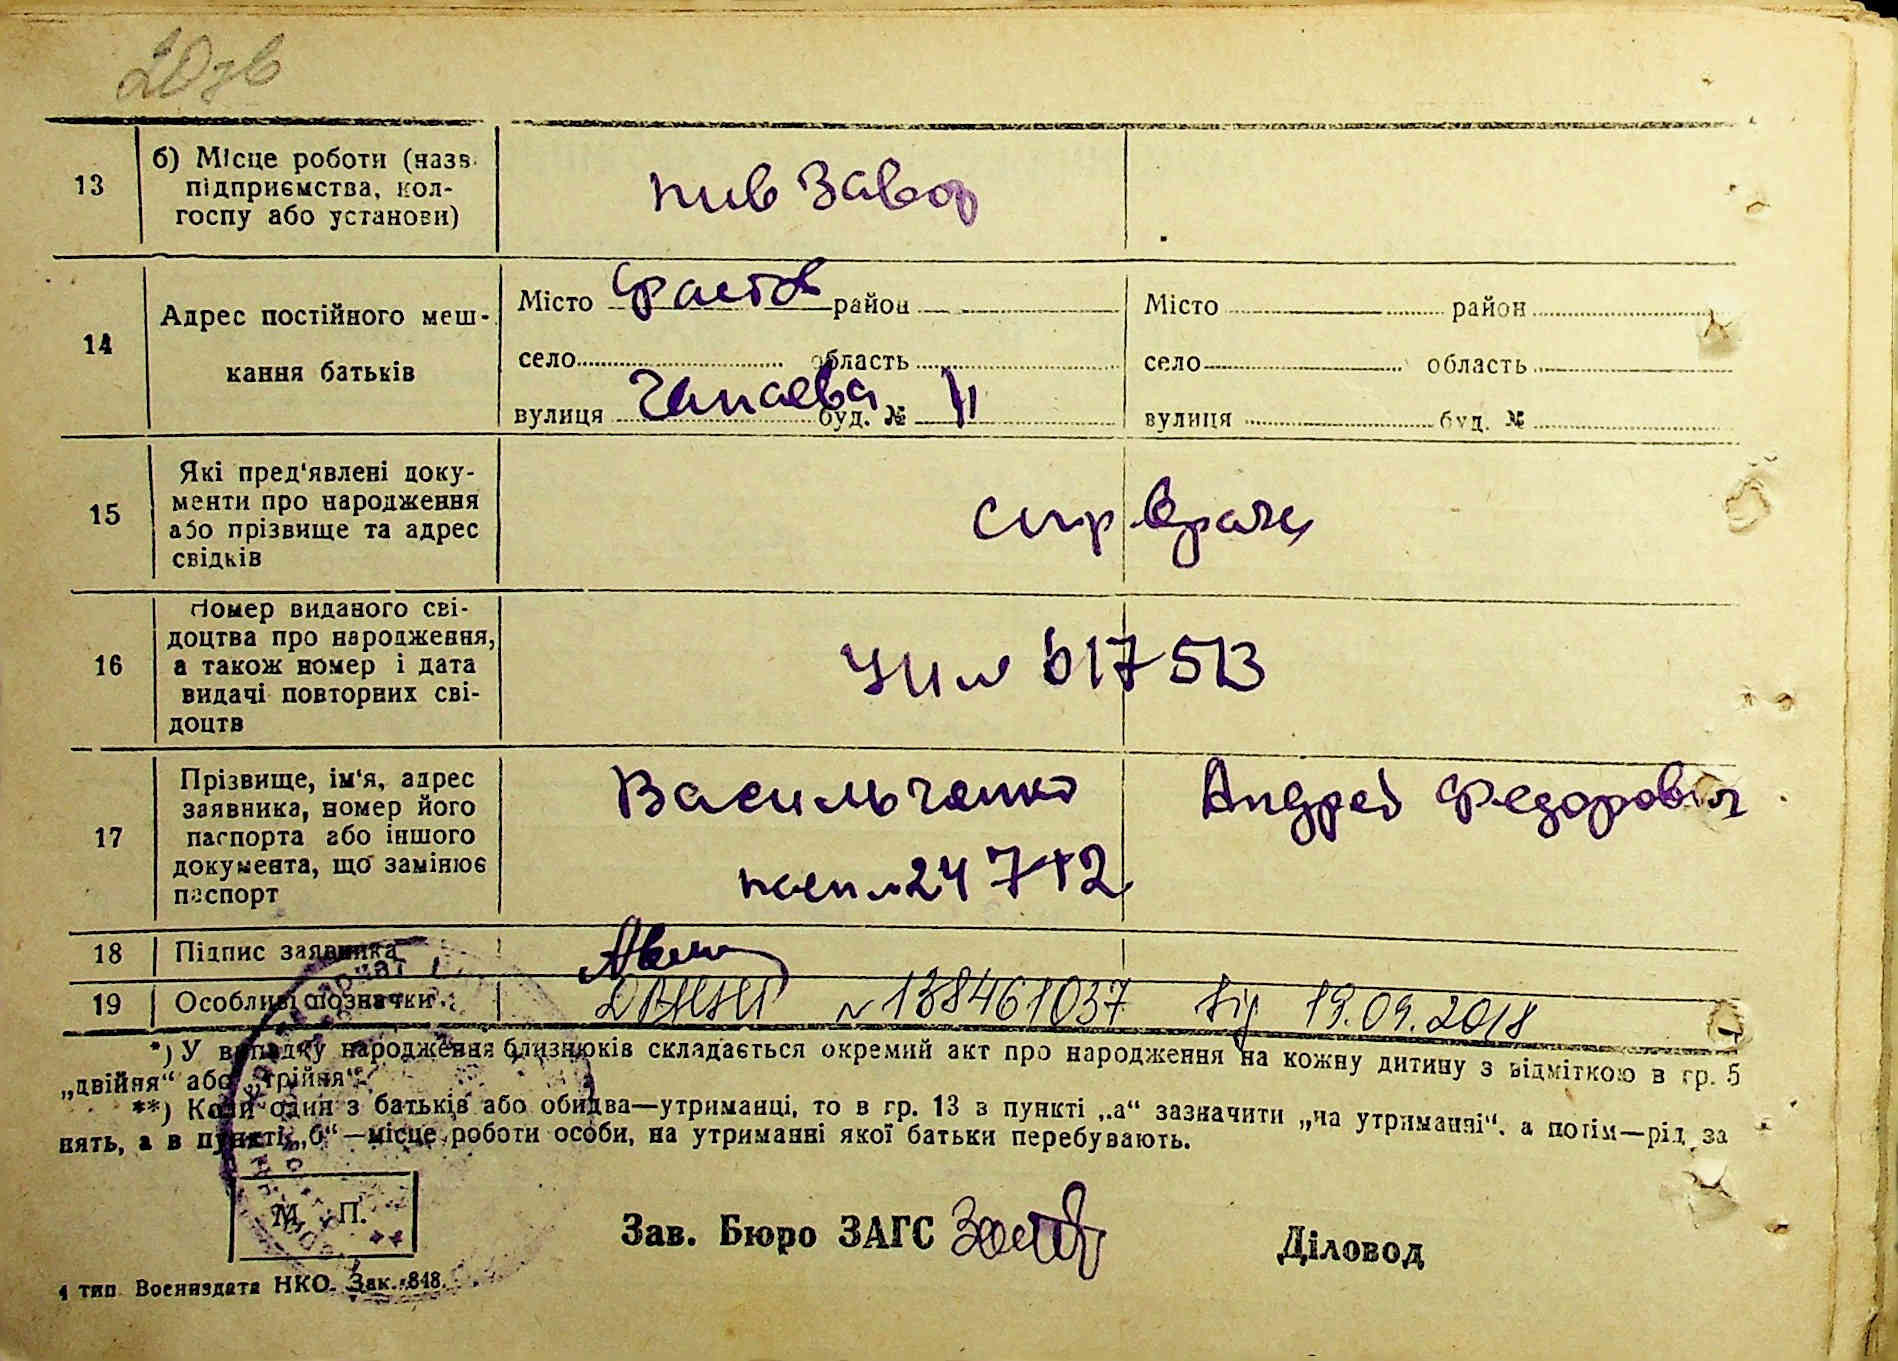 20зв
13
б) Місце роботи (назв.
підприємства, кол-
госпу або установи)
пив завод
14
Адрес постійного меш-
кання батьків
Місто Фастов район
село область
вулиця Чапаева буд. № 11
Місто район
село область
вулиця буд. №
15
Які пред'явлені доку-
менти про народження
або прізвище та адрес
свідків
спр врача
16
Номер виданого сві-
доцтва про народження,
а також номер і дата
видачі повторних сві-
доцтв
№ 017513
17
Прізвище, ім'я, адрес
заявника, номер його
паспорта або іншого
документа, що замінює
паспорт
Васильченко Андрей Федорович
24 7
18
Підпис заявника
19
Особливі позначки
№138461037 від 19.09.2018
*) У випадку народження близнюків складається окремий акт про народження на кожну дитину з відміткою в гр. 5
„двійня“ або „трійня“.
**) Коли один з батьків або обидва—утриманці, то в гр. 13 в пункті „а“ зазначити „на утриманні“, а потім—рід за
нять, а в пункті „б“—місце роботи особи, на утриманні якої батьки перебувають.
М. П.
Зав. Бюро ЗАГС
Діловод
4 тип. Воениздата НКО. Зак. 848.